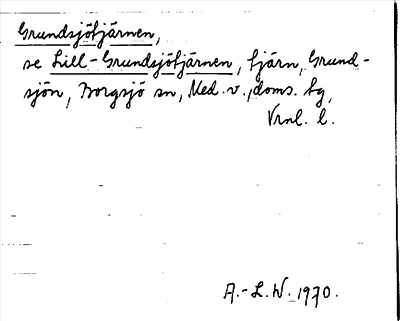 Grundsjötjärnen,
se Lill-Grundsjötjärnen, tjärn, Grund-
sjön, Borgsjö sn, Med. v. doms. tg,
Vrnl. l.
A.-L. W. 1970.